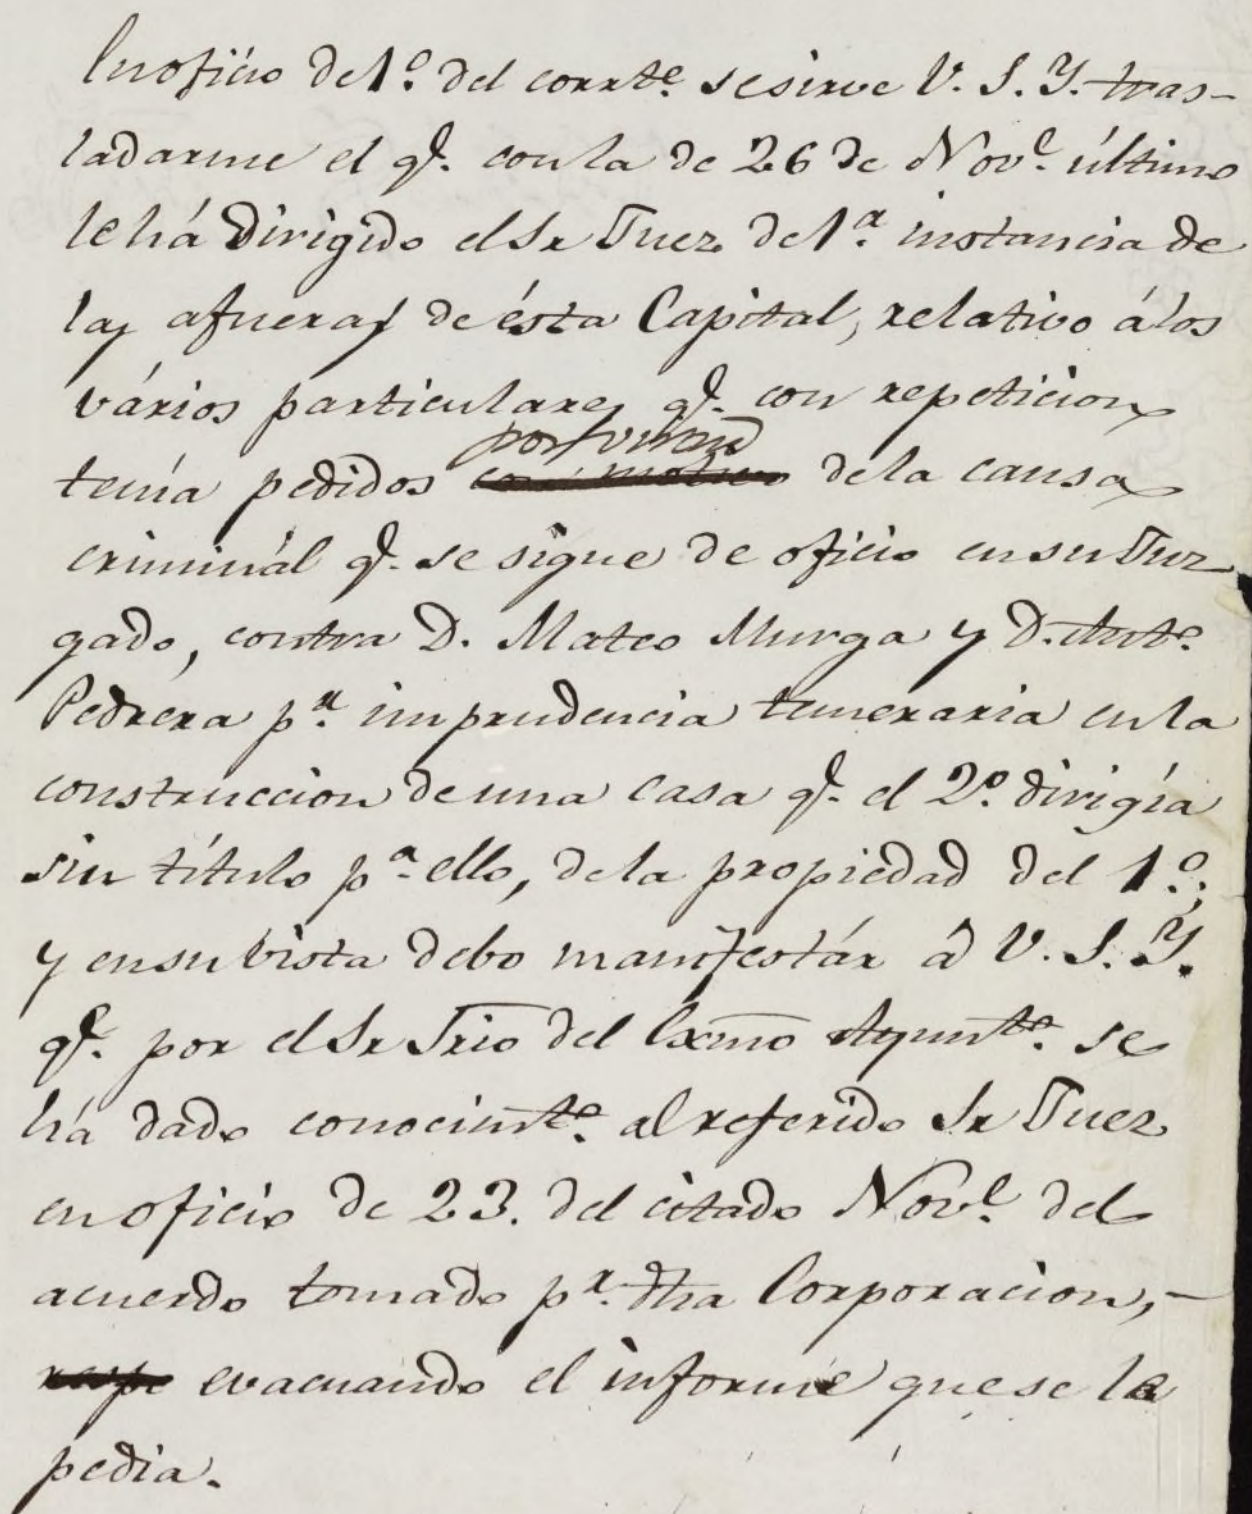 En oficio de 1.º del corrte. se sirve V. S. Y. tras-
ladarme el q.e con la de 26 de Nov.e último
le há dirigido el Sr Juez de 1.ª instancia de
las afueras de ésta Capital, relativo á los
vários particulares q.e con repeticion
tenía pedidos por virtud con motivo de la causa
criminál q.e se sigue de oficio en su Juz
gado, contra D. Mateo Murga y D. Ant.º
Pedrera p.r imprudencia temeraria en la
construccion de una casa q.e el 2.º dirigía
sin título p.ª ello, de la propiedad del 1.º;
y en su vista debo manifestár á V. S. Y.
q.e por el Sr Srio del Exmo Ayunt.º se
há dado conocimt.º al referido Sr Juez
en oficio de 23. del citado Nov.e del
acuerdo tomado p.r dha Corporacion,-
respe evacuando el informe que se le
pedia.